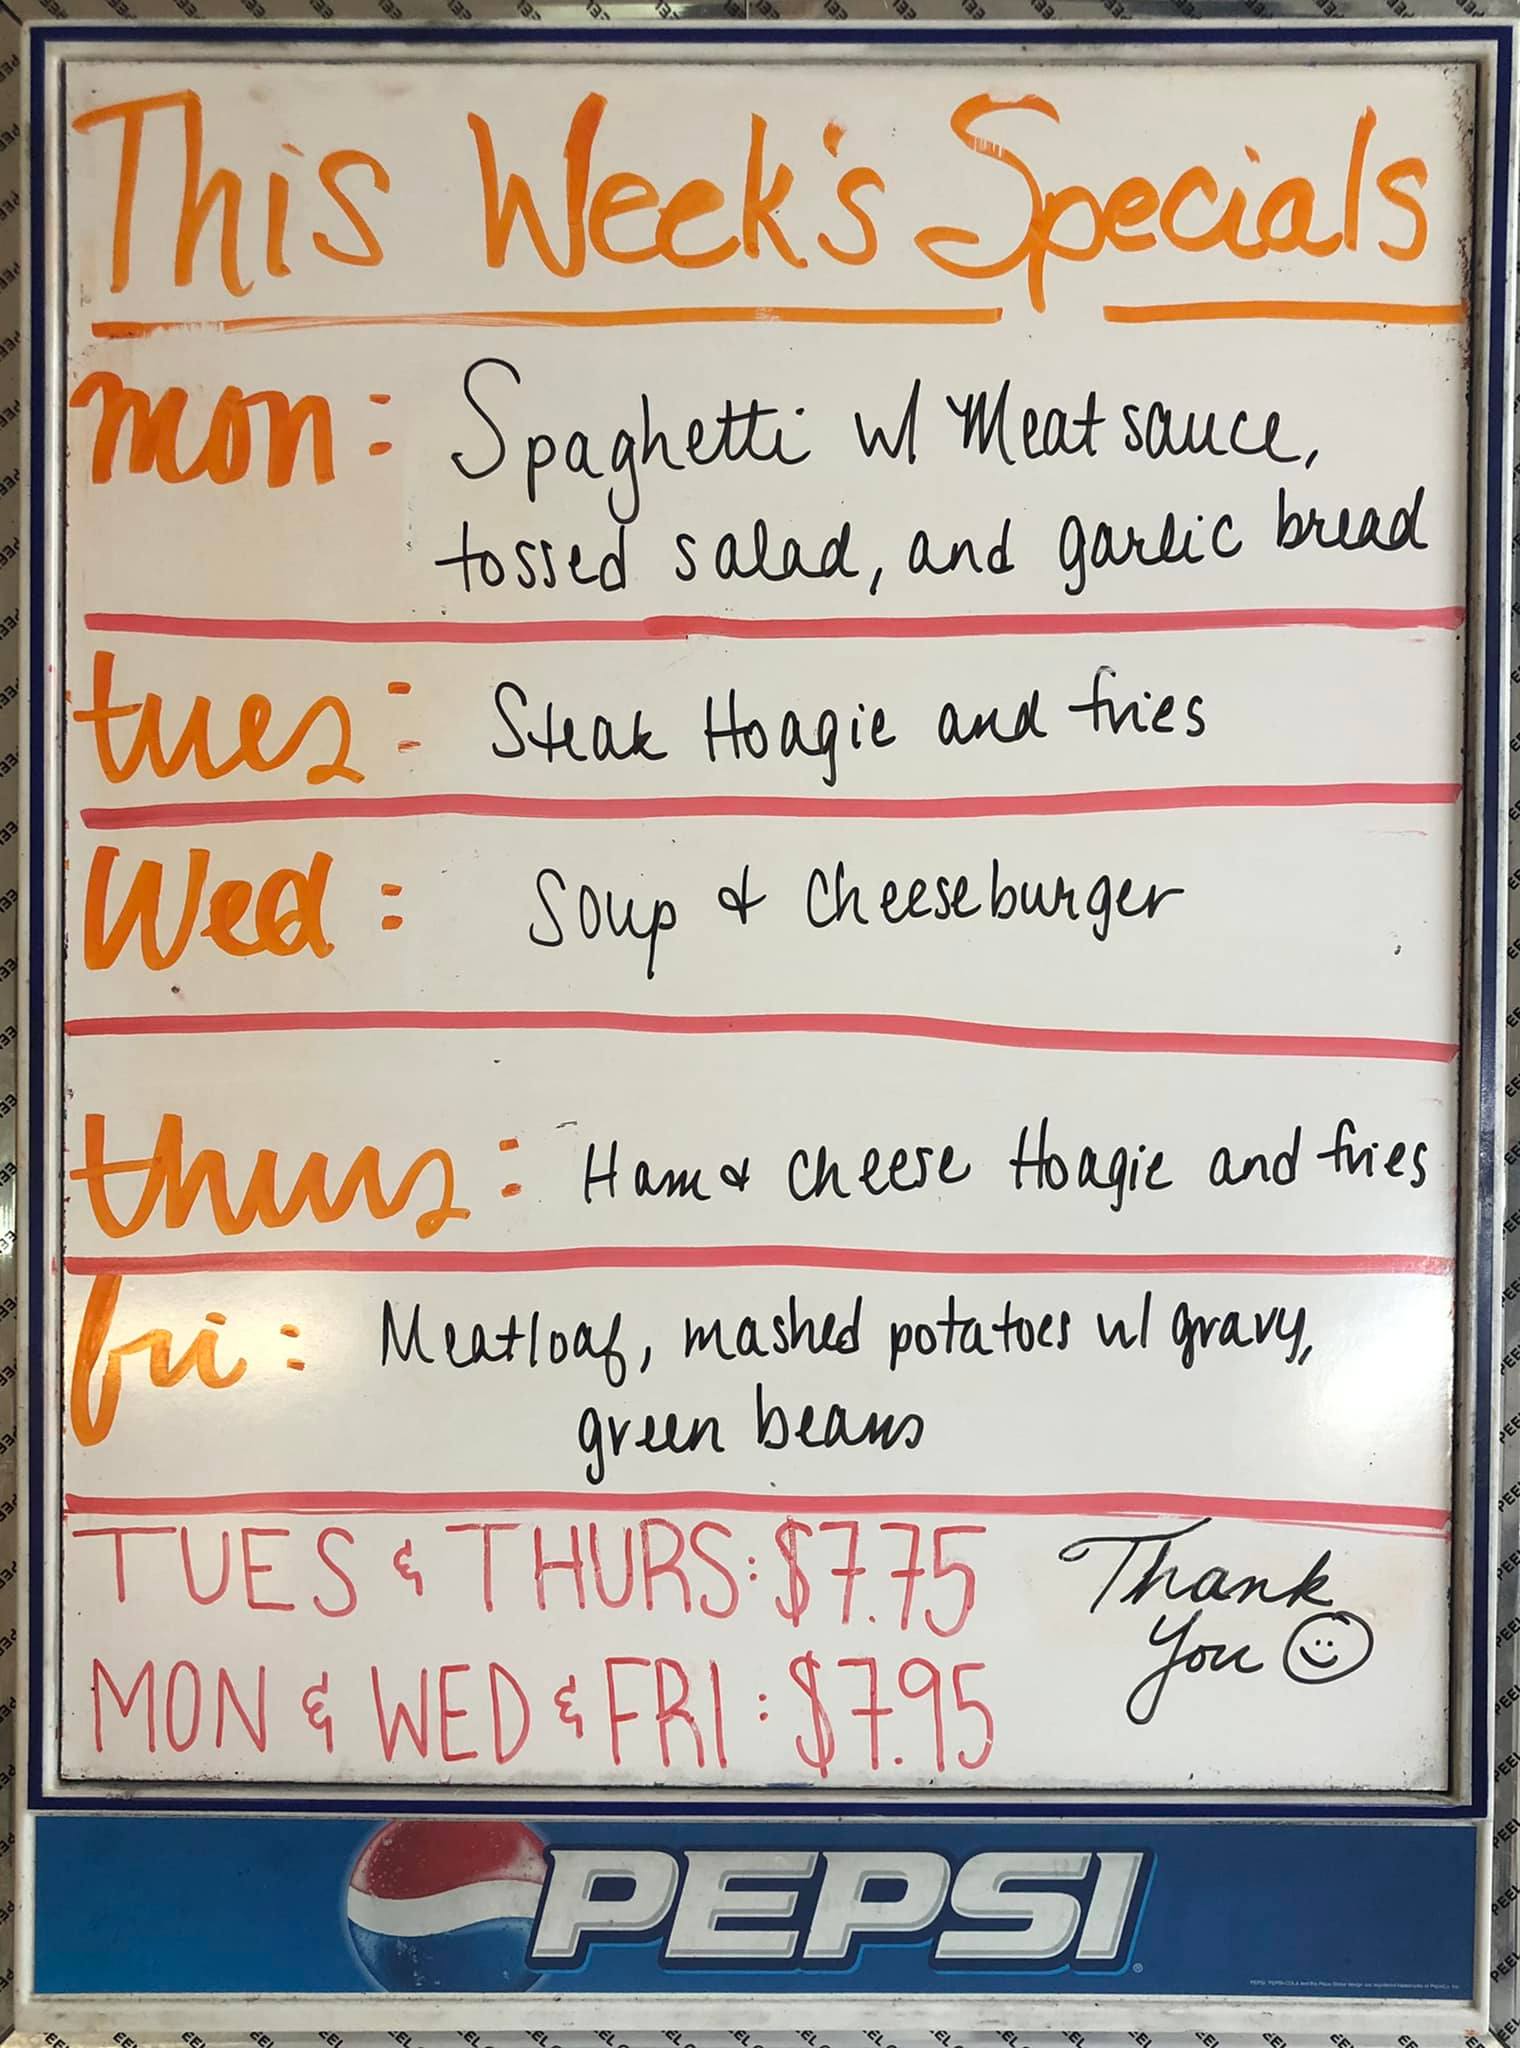 This Week's Specials
mon: Spaghetti w/ Meat sauce,
tossed salad, and garlic bread
tues: Steak Hoagie and fries
Wed: Soup & Cheeseburger
thurs: Ham & Cheese Hoagie and fries
fri: Meatloaf, mashed potatoes w/ gravy,
green beans
TUES & THURS: $7.75
MON & WED & FRI: $7.95
Thank
You
PEPSI